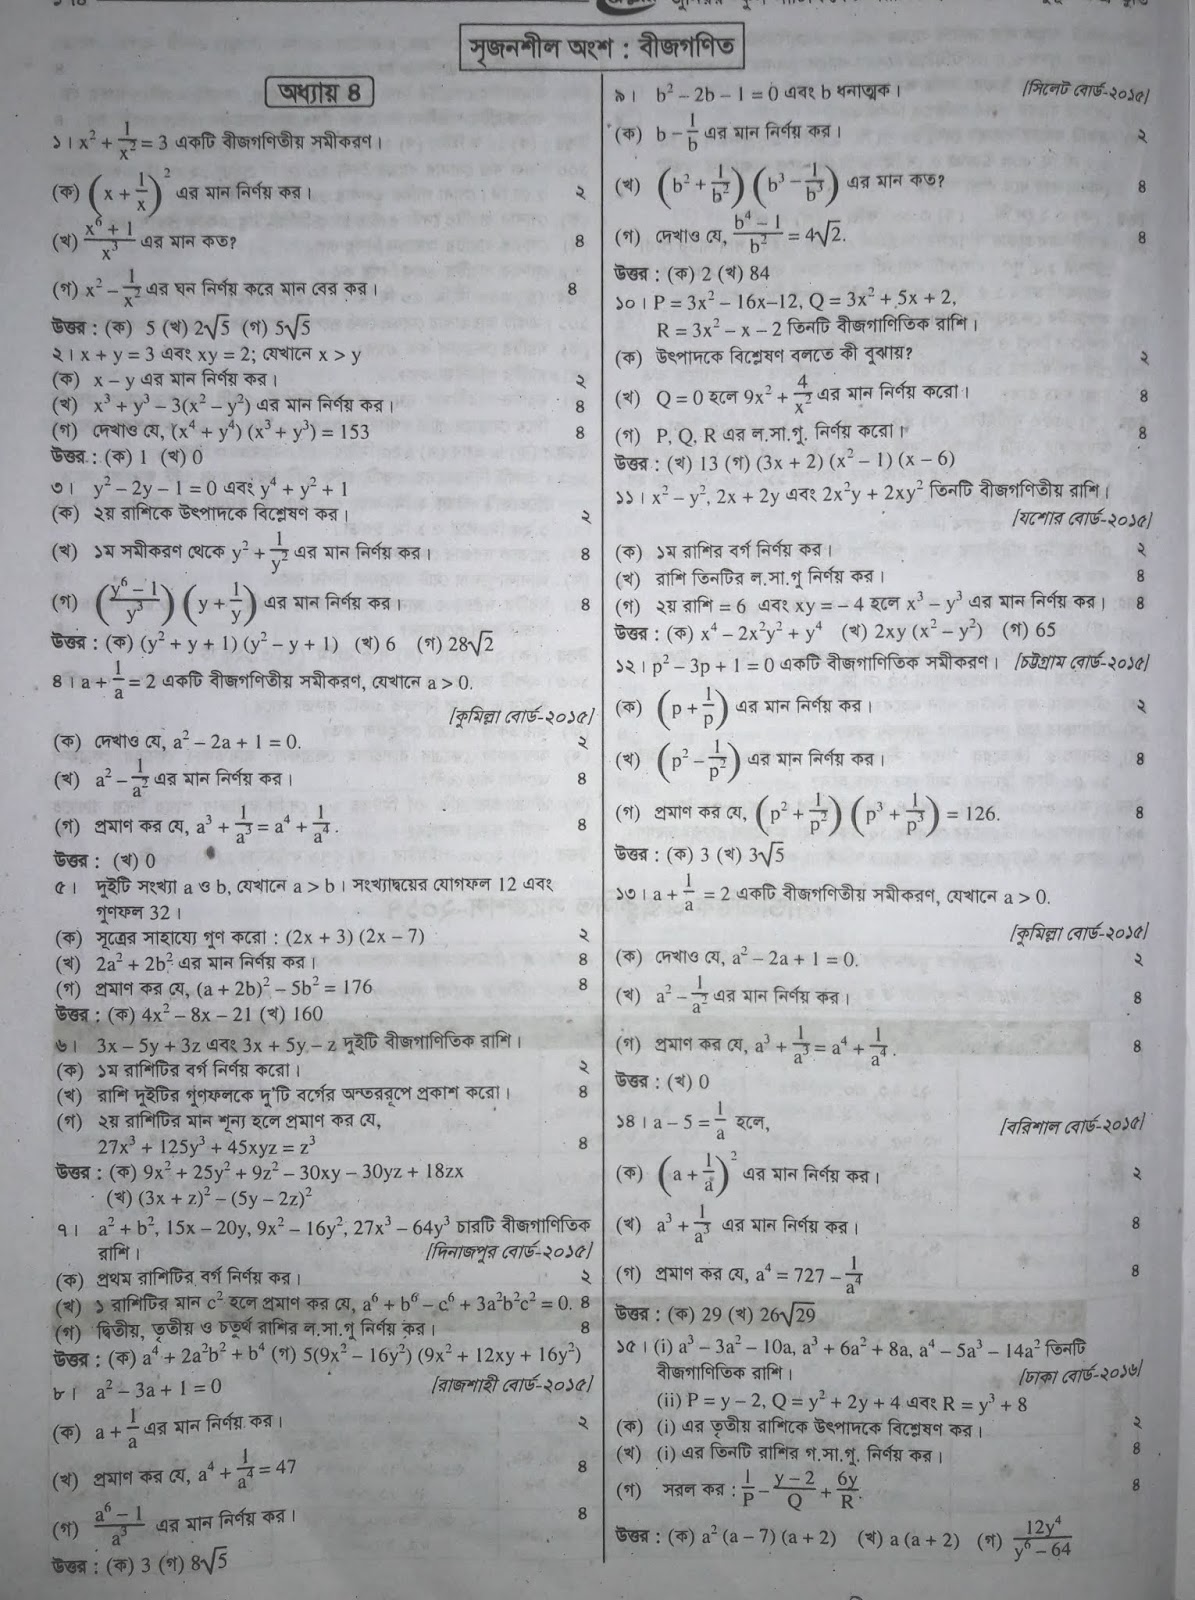 সৃজনশীল অংশ : বীজগণিত
অধ্যায় ৪
১। x² + 1/x² = 3 একটি বীজগণিতীয় সমীকরণ।
(ক) (x + 1/x)² এর মান নির্ণয় কর। ২
(খ) (x⁶ + 1)/x³ এর মান কত? ৪
(গ) x² – 1/x² এর ঘন নির্ণয় করে মান বের কর। ৪
উত্তর : (ক) 5 (খ) 2√5 (গ) 5√5
২। x + y = 3 এবং xy = 2; যেখানে x > y
(ক) x – y এর মান নির্ণয় কর। ২
(খ) x³ + y³ – 3(x² – y²) এর মান নির্ণয় কর। ৪
(গ) দেখাও যে, (x⁴ + y⁴) (x³ + y³) = 153 ৪
উত্তর : (ক) 1 (খ) 0
৩। y² – 2y – 1 = 0 এবং y⁴ + y² + 1
(ক) ২য় রাশিকে উৎপাদকে বিশ্লেষণ কর। ২
(খ) ১ম সমীকরণ থেকে y² + 1/y² এর মান নির্ণয় কর। ৪
(গ) ((y⁶ – 1)/y³) (y + 1/y) এর মান নির্ণয় কর। ৪
উত্তর : (ক) (y² + y + 1) (y² – y + 1) (খ) 6 (গ) 28√2
৪। a + 1/a = 2 একটি বীজগণিতীয় সমীকরণ, যেখানে a > 0.
[কুমিল্লা বোর্ড-২০১৫]
(ক) দেখাও যে, a² – 2a + 1 = 0. ২
(খ) a² – 1/a² এর মান নির্ণয় কর। ৪
(গ) প্রমাণ কর যে, a³ + 1/a³ = a⁴ + 1/a⁴. ৪
উত্তর : (খ) 0
৫। দুইটি সংখ্যা a ও b, যেখানে a > b। সংখ্যাদ্বয়ের যোগফল 12 এবং
গুণফল 32।
(ক) সূত্রের সাহায্যে গুণ করো : (2x + 3) (2x – 7) ২
(খ) 2a² + 2b² এর মান নির্ণয় কর। ৪
(গ) প্রমাণ কর যে, (a + 2b)² – 5b² = 176 ৪
উত্তর : (ক) 4x² – 8x – 21 (খ) 160
৬। 3x – 5y + 3z এবং 3x + 5y – z দুইটি বীজগাণিতিক রাশি।
(ক) ১ম রাশিটির বর্গ নির্ণয় করো। ২
(খ) রাশি দুইটির গুণফলকে দু'টি বর্গের অন্তররূপে প্রকাশ করো। ৪
(গ) ২য় রাশিটির মান শূন্য হলে প্রমাণ কর যে,
27x³ + 125y³ + 45xyz = z³ ৪
উত্তর : (ক) 9x² + 25y² + 9z² – 30xy – 30yz + 18zx
(খ) (3x + z)² – (5y – 2z)²
৭। a² + b², 15x – 20y, 9x² – 16y², 27x³ – 64y³ চারটি বীজগাণিতিক
রাশি। [দিনাজপুর বোর্ড-২০১৫]
(ক) প্রথম রাশিটির বর্গ নির্ণয় কর। ২
(খ) ১ রাশিটির মান c² হলে প্রমাণ কর যে, a⁶ + b⁶ – c⁶ + 3a²b²c² = 0. ৪
(গ) দ্বিতীয়, তৃতীয় ও চতুর্থ রাশির ল.সা.গু নির্ণয় কর। ৪
উত্তর : (ক) a⁴ + 2a²b² + b⁴ (গ) 5(9x² – 16y²) (9x² + 12xy + 16y²)
৮। a² – 3a + 1 = 0 [রাজশাহী বোর্ড-২০১৫]
(ক) a + 1/a এর মান নির্ণয় কর। ২
(খ) প্রমাণ কর যে, a⁴ + 1/a⁴ = 47 ৪
(গ) (a⁶ – 1)/a³ এর মান নির্ণয় কর। ৪
উত্তর : (ক) 3 (গ) 8√5
৯। b² – 2b – 1 = 0 এবং b ধনাত্মক। [সিলেট বোর্ড-২০১৫]
(ক) b – 1/b এর মান নির্ণয় কর। ২
(খ) (b² + 1/b²) (b³ – 1/b³) এর মান কত? ৪
(গ) দেখাও যে, (b⁴ – 1)/b² = 4√2. ৪
উত্তর : (ক) 2 (খ) 84
১০। P = 3x² – 16x–12, Q = 3x² + 5x + 2,
R = 3x² – x – 2 তিনটি বীজগাণিতিক রাশি।
(ক) উৎপাদকে বিশ্লেষণ বলতে কী বুঝায়? ২
(খ) Q = 0 হলে 9x² + 4/x² এর মান নির্ণয় করো। ৪
(গ) P, Q, R এর ল.সা.গু. নির্ণয় করো। ৪
উত্তর : (খ) 13 (গ) (3x + 2) (x² – 1) (x – 6)
১১। x² – y², 2x + 2y এবং 2x²y + 2xy² তিনটি বীজগণিতীয় রাশি।
[যশোর বোর্ড-২০১৫]
(ক) ১ম রাশির বর্গ নির্ণয় কর। ২
(খ) রাশি তিনটির ল.সা.গু নির্ণয় কর। ৪
(গ) ২য় রাশি = 6 এবং xy = – 4 হলে x³ – y³ এর মান নির্ণয় কর। ৪
উত্তর : (ক) x⁴ – 2x²y² + y⁴ (খ) 2xy (x² – y²) (গ) 65
১২। p² – 3p + 1 = 0 একটি বীজগাণিতিক সমীকরণ। [চট্টগ্রাম বোর্ড-২০১৫]
(ক) (p + 1/p) এর মান নির্ণয় কর। ২
(খ) (p² – 1/p²) এর মান নির্ণয় কর। ৪
(গ) প্রমাণ কর যে, (p² + 1/p²) (p³ + 1/p³) = 126. ৪
উত্তর : (ক) 3 (খ) 3√5
১৩। a + 1/a = 2 একটি বীজগণিতীয় সমীকরণ, যেখানে a > 0.
[কুমিল্লা বোর্ড-২০১৫]
(ক) দেখাও যে, a² – 2a + 1 = 0. ২
(খ) a² – 1/a² এর মান নির্ণয় কর। ৪
(গ) প্রমাণ কর যে, a³ + 1/a³ = a⁴ + 1/a⁴. ৪
উত্তর : (খ) 0
১৪। a – 5 = 1/a হলে, [বরিশাল বোর্ড-২০১৫]
(ক) (a + 1/a)² এর মান নির্ণয় কর। ২
(খ) a³ + 1/a³ এর মান নির্ণয় কর। ৪
(গ) প্রমাণ কর যে, a⁴ = 727 – 1/a⁴ ৪
উত্তর : (ক) 29 (খ) 26√29
১৫। (i) a³ – 3a² – 10a, a³ + 6a² + 8a, a⁴ – 5a³ – 14a² তিনটি
বীজগাণিতিক রাশি। [ঢাকা বোর্ড-২০১৬]
(ii) P = y – 2, Q = y² + 2y + 4 এবং R = y³ + 8
(ক) (i) এর তৃতীয় রাশিকে উৎপাদকে বিশ্লেষণ কর। ২
(খ) (i) এর তিনটি রাশির গ.সা.গু. নির্ণয় কর। ৪
(গ) সরল কর : 1/P – (y – 2)/Q + 6y/R. ৪
উত্তর : (ক) a² (a – 7) (a + 2) (খ) a (a + 2) (গ) 12y⁴/(y⁶ – 64)